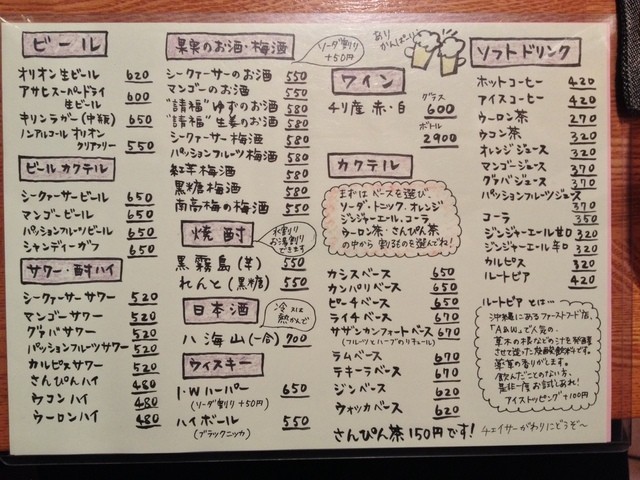 ビール
オリオン生ビール 620
アサヒスーパードライ
生ビール 600
キリンラガー(中瓶) 650
ノンアルコールオリオン
クリアフリー 550
ビールカクテル
シークァーサービール 650
マンゴービール 650
パッションフルーツビール 650
シャンディーガフ 650
サワー・酎ハイ
シークァーサーサワー 520
マンゴーサワー 520
グァバサワー 520
パッションフルーツサワー 520
カルピスサワー 520
さんぴんハイ 480
ウコンハイ 480
ウーロンハイ 480
果実のお酒・梅酒
ソーダ割り
+50円
シークァーサーのお酒 550
マンゴーのお酒 550
"請福"ゆずのお酒 580
"請福"生姜のお酒 580
シークァーサー梅酒 580
パッションフルーツ梅酒 580
紅芋梅酒 580
黒糖梅酒 580
南高梅の梅酒 550
焼酎
水割り
お湯割り
できます
黒霧島(芋) 550
れんと(黒糖) 550
日本酒
冷又は
熱かんで
八海山(一合) 700
ウィスキー
I.Wハーパー 650
(ソーダ割り+50円)
ハイボール 550
(ブラックニッカ)
あり
かんぱーい
ワイン
チリ産 赤・白
グラス
600
ボトル
2900
カクテル
まずはベースを選び、
ソーダ・トニック、オレンジ
ジンジャーエール、コーラ
ウーロン茶・さんぴん茶
の中から割るものを選んでね!
カシスベース 650
カンパリベース 650
ピーチベース 650
ライチベース 670
サザンカンフォートベース 670
(フルーツとハーブのリキュール)
ラムベース 670
テキーラベース 670
ジンベース 620
ウォッカベース 620
さんぴん茶150円です!
チェイサーがわりにどうぞ〜
ソフトドリンク
ホットコーヒー 420
アイスコーヒー 420
ウーロン茶 270
ウコン茶 320
オレンジジュース 320
マンゴージュース 370
グァバジュース 370
パッションフルーツジュース
370
コーラ 350
ジンジャーエール甘口 320
ジンジャーエール辛口 320
カルピス 320
ルートビア 420
ルートビアとは…
沖縄にあるファーストフード店、
「A&W」で人気の、
草木の根などの汁を発酵
させて造った炭酸飲料です。
薬草の香りがします。
飲んだことのない方、
是非一度お試しあれ!
アイストッピング+100円